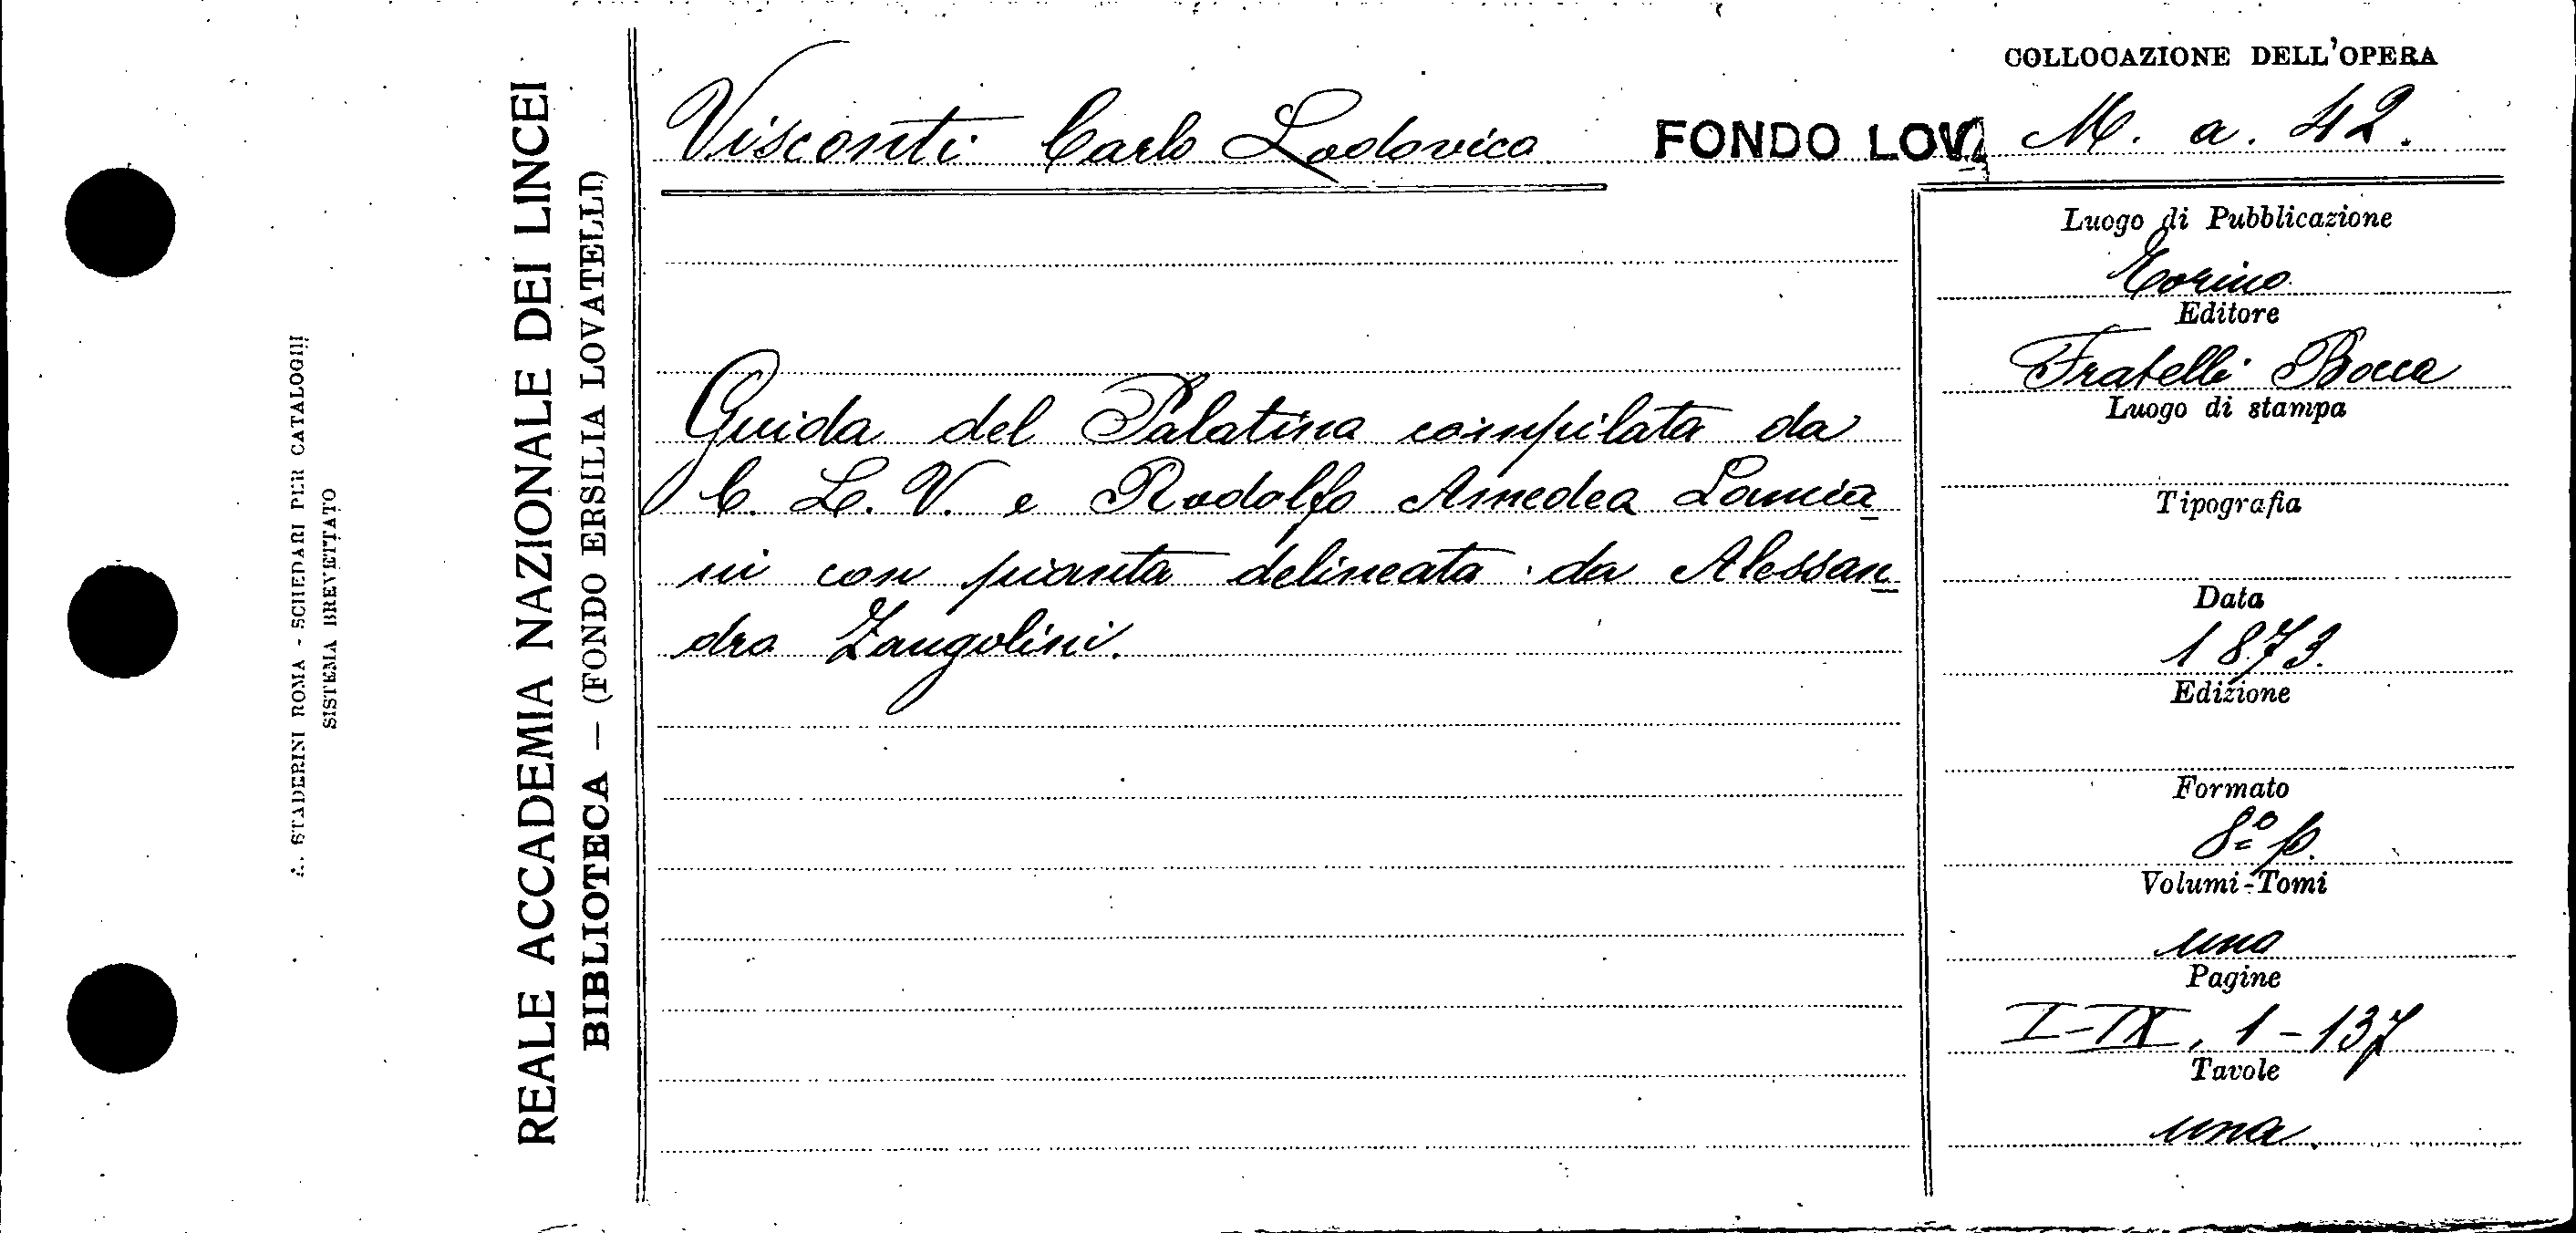 A. STADERINI ROMA - SCHEDARI PER CATALOGHI
SISTEMA BREVETTATO
REALE ACCADEMIA NAZIONALE DEI LINCEI
BIBLIOTECA — (FONDO ERSILIA LOVATELLI)
COLLOCAZIONE DELL'OPERA
Visconti Carlo Lodovico FONDO LOV. M. a. 42.
Guida del Palatino compilata da
C. L. V. e Rodolfo Amedeo Lancia
ni con pianta delineata da Alessan
dro Zangolini.
Luogo di Pubblicazione
Torino
Editore
Fratelli Bocca
Luogo di stampa
Tipografia
Data
1873.
Edizione
Formato
8º p.
Volumi-Tomi
uno
Pagine
I-IX, 1-137
Tavole
una.